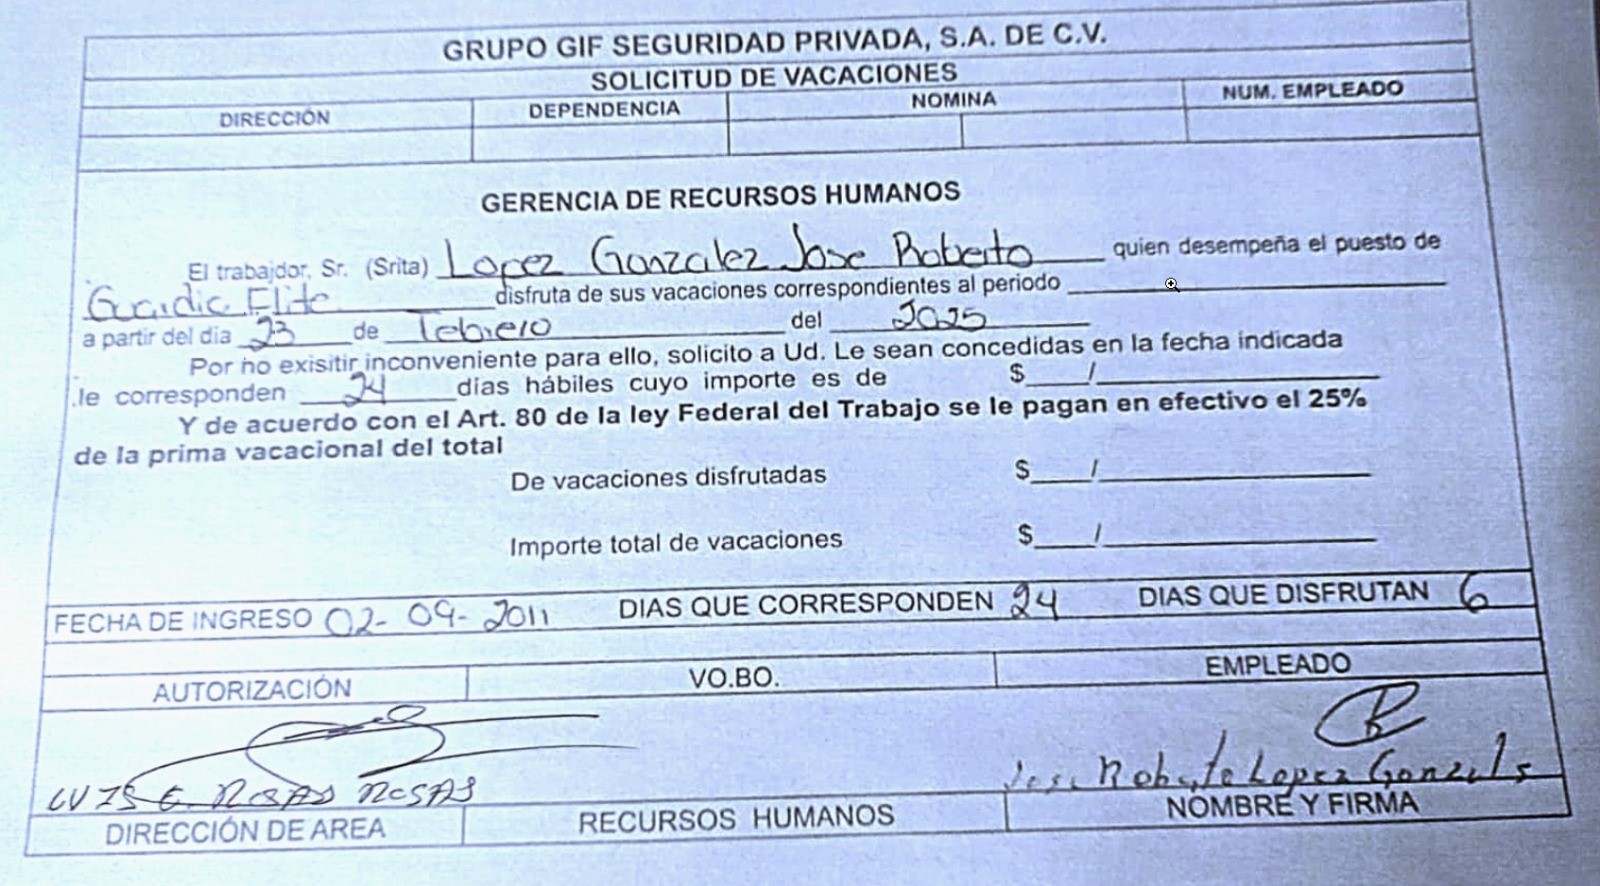 GRUPO GIF SEGURIDAD PRIVADA, S.A. DE C.V.
SOLICITUD DE VACACIONES
DIRECCIÓN DEPENDENCIA NOMINA NUM. EMPLEADO
GERENCIA DE RECURSOS HUMANOS
El trabajdor, Sr. (Srita) Lopez Gonzalez Jose Roberto quien desempeña el puesto de
Guardia Elite disfruta de sus vacaciones correspondientes al periodo
a partir del dia 23 de Febrero del 2025
Por no exisitir inconveniente para ello, solicito a Ud. Le sean concedidas en la fecha indicada
.le corresponden 24 días hábiles cuyo importe es de $ /
Y de acuerdo con el Art. 80 de la ley Federal del Trabajo se le pagan en efectivo el 25%
de la prima vacacional del total
De vacaciones disfrutadas $ /
Importe total de vacaciones $ /
FECHA DE INGRESO 02-09-2011 DIAS QUE CORRESPONDEN 24 DIAS QUE DISFRUTAN 6
AUTORIZACIÓN VO.BO. EMPLEADO
LUIS E. ROSAS ROSAS Jose Roberto Lopez Gonzalz
DIRECCIÓN DE AREA RECURSOS HUMANOS NOMBRE Y FIRMA